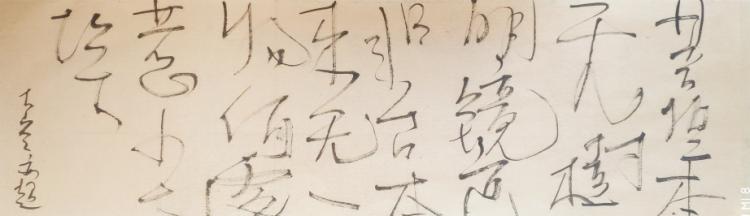 菩提本
无樹
明鏡亦
非台本
来无一
物何處
惹尘
埃
MI 8